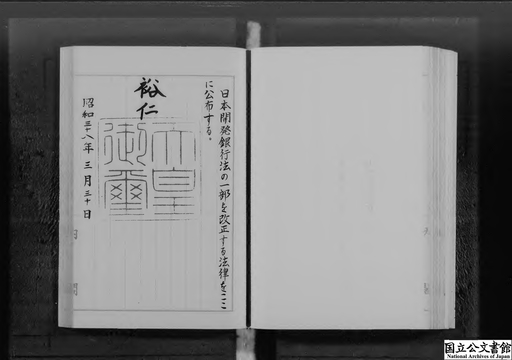 日本開発銀行法の一部を改正する法律をここ
に公布する。
裕仁
天皇
御璽
昭和三十八年三月三十日
国立公文書館
National Archives of Japan